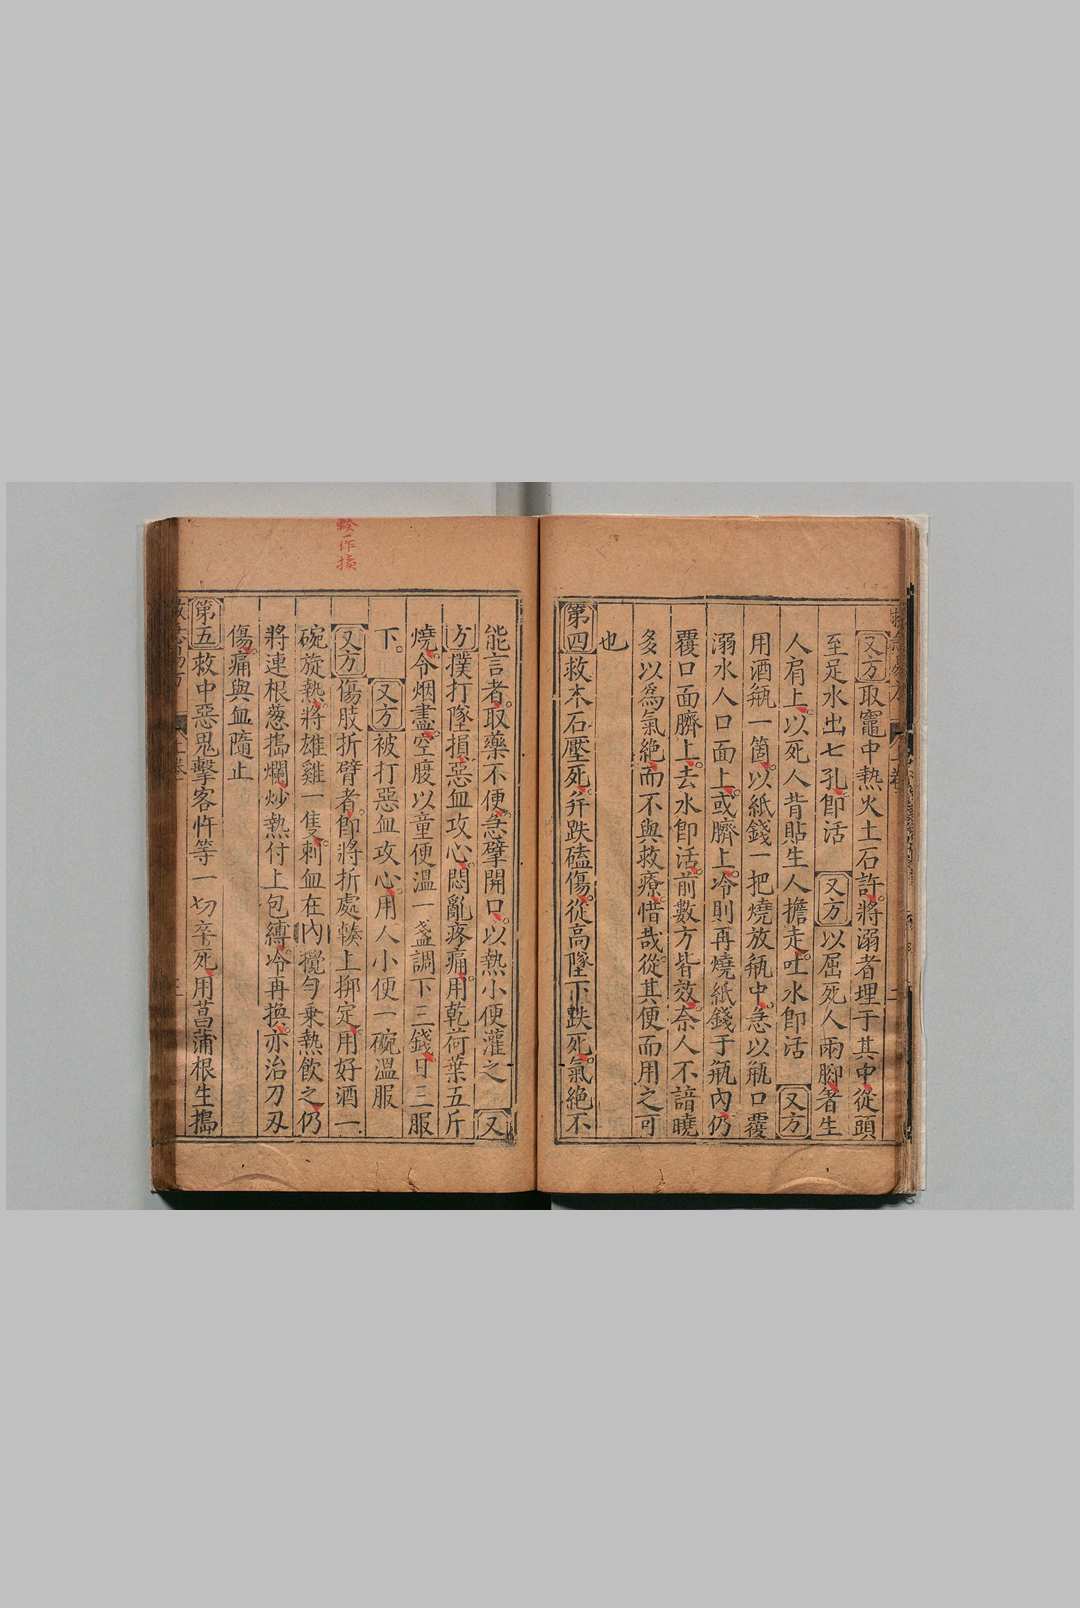 又方取竈中熱火土石許將溺者埋于其中從頭
至足水出七孔即活 又方以屈死人兩脚著生
人肩上以死人背貼生人擔走吐水即活 又方
用酒瓶一箇以紙錢一把燒放瓶中急以瓶口覆
溺水人口面上或臍上冷則再燒紙錢于瓶內仍
覆口面臍上去水即活前數方皆效奈人不諳曉
多以為氣絶而不與救療惜哉從其便而用之可
也
第四救木石壓死并跌磕傷從高墜下跌死氣絶不
能言者取藥不便急擘開口以熱小便灌之 又
方撲打墜損惡血攻心悶亂疼痛用乾荷葉五斤
燒令烟盡空腹以童便溫一盞調下三錢日三服
下 又方被打惡血攻心用人小便一碗溫服
又方傷肢折臂者即將折處輳上揶定用好酒一
碗旋熱將雄雞一隻刺血在內攪勻乗熱飲之仍
將連根葱搗爛炒熱付上包縛冷再換亦治刀刃
傷痛與血隨止
第五救中惡鬼擊客忤等一切卒死用菖蒲根生搗
一作